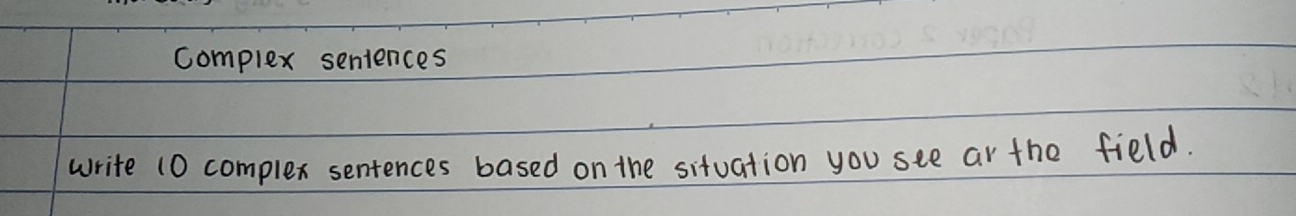 Complex sentences
Write 10 complex sentences based on the situation you see ar the field.